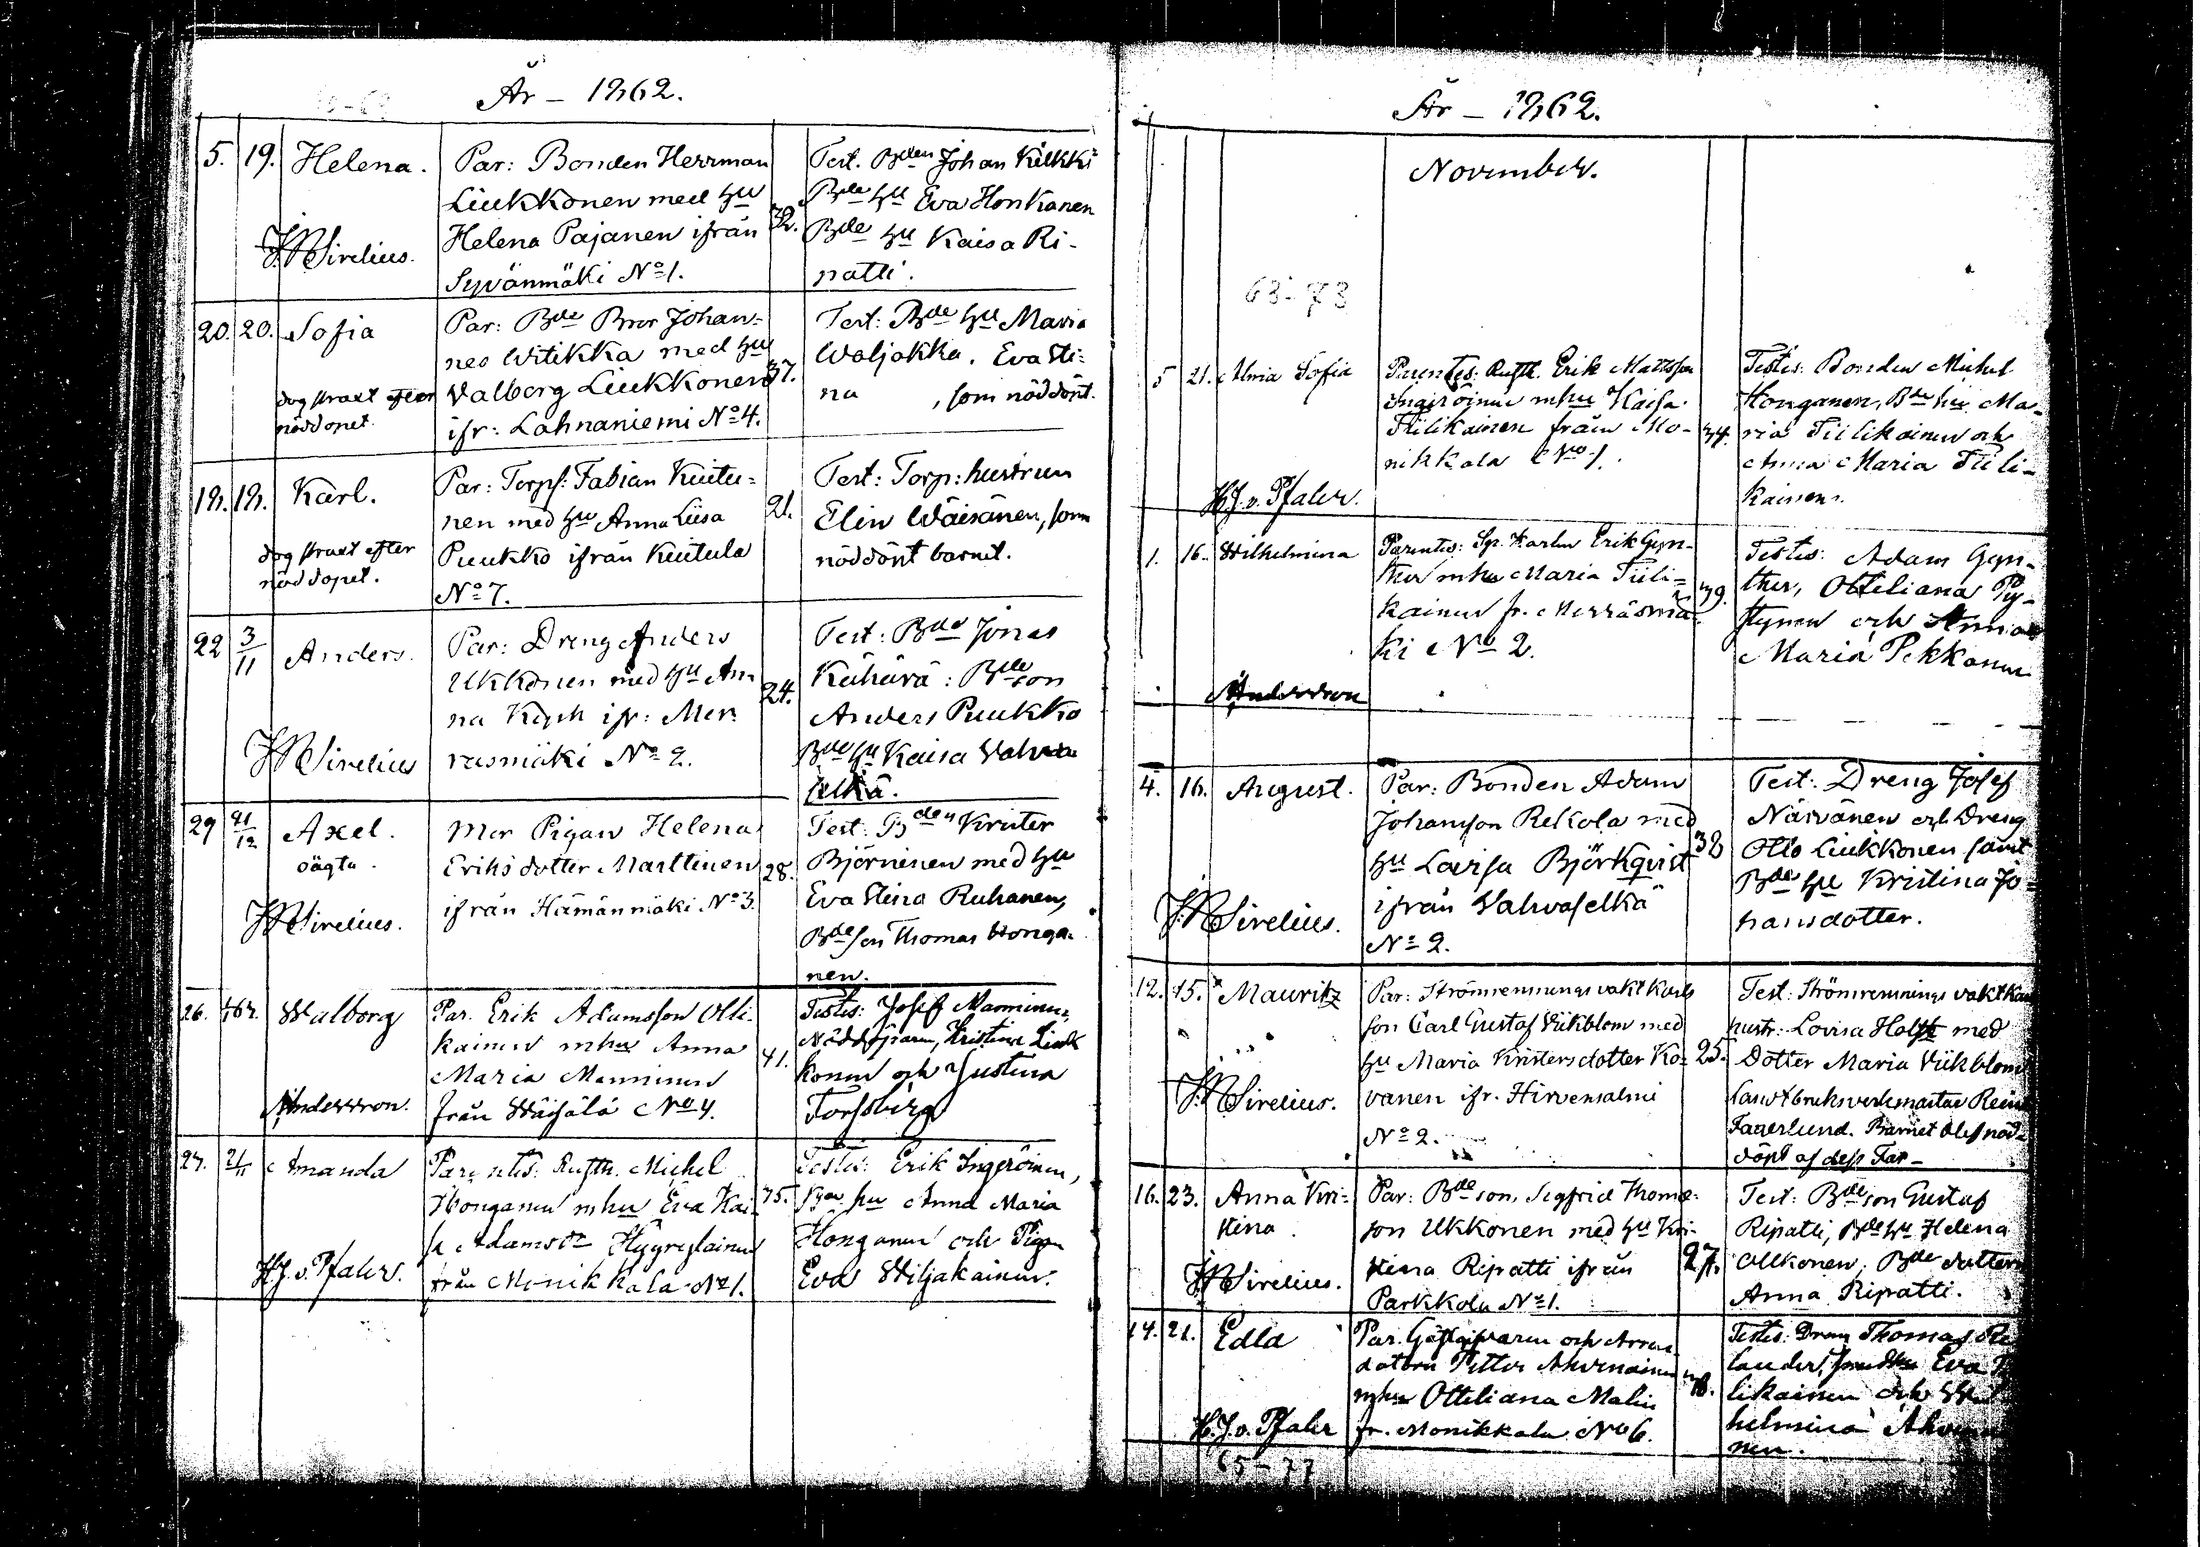 År – 1862.
5. 19. Helena.
J.R. Sirelius.
Par: Bonden Herrman
Liukkonen med hu
Helena Pajanen ifrån
Syvänmäki No 1.
32.
Test. Bden Johan Kilkki
Bde hu Eva Honkanen
Bde hu Kaisa Ri-
patti.
20. 20. Sofia
dog straxt efter
nöddopet.
Par: Bde Bror Johan-
nes Witikka med hu
Valborg Liukkonen
ifr: Lahnaniemi No 4.
37.
Test: Bde hu Maria
Waljakka. Eva Sti-
na , som nöddöpt.
18. 18. Karl.
dog straxt efter
nöddopet.
Par: Torp: Fabian Kuitu-
nen med hu Anna Liisa
Puukko ifrån Kuitula
No 7.
21.
Test: Torp: hustrun
Elin Wäisänen, som
nöddöpt barnet.
22 3/11 Anders.
J.R. Sirelius
Par: Dreng Anders
Ukkonen med hu An-
na Kyyh ifr: Mer-
rasmäki No 2.
24.
Test: Bde Jonas
Kähärä: Bdeson
Anders Puukko
Bde hu Kaisa Vahva
selkä.
29 21/12 Axel.
oägta.
J.R. Sirelius.
Mor Pigan Helena
Eriksdotter Marttinen
ifrån Hämänmäki No 3.
28.
Test: Bden Krister
Björninen med hu
Eva Stina Ruhanen,
Bdeson Thomas Honga-
nen.
26. Walborg
Andersson.
Par. Erik Adamsson Olli-
kainen mhu Anna
Maria Manninen
från Wäisälä No 4.
41.
Testes: Josef Manninen,
Nöddöparen, Kristina Liuk
konen och Justina
Forssberg
27. 2/11 Amanda
H.J. v. Pfaler.
Parentes: Rusth. Michel
Honganen mhu Eva Kai-
sa Adamsdr Hyyryläinen
från Monikkala No 1.
35.
Testes: Erik Ingeröinen,
hu Anna Maria
Honganen och Pigan
Eva Wiljakainen.
År – 1862.
November.
63-73
5 21. Alma Sofia
H.J. v. Pfaler.
Parentes: Rusth. Erik Mattsson
Ingeröinen mhu Kaisa
Tiilikainen från Mo-
nikkala No 1.
34.
Testes: Bonden Michel
Honganen, Bde hu Ma-
ria Tiilikainen och
Anna Maria Tiili-
kainen.
1. 16. Wilhelmina
Andersson
Parentes: Sp. Karlen Erik Gyn-
ther mhu Maria Tiili-
kainen fr. Merräsmä-
ki No 2.
39.
Testes: Adam Gyn-
ther, Otteliana Py-
stynen och Anna
Maria Pekkanen
4. 16. August.
J.R. Sirelius.
Par: Bonden Adam
Johansson Rekola med
hu Lovisa Björkqvist
ifrån Vahvaselkä
No 2.
38
Test: Dreng Josef
Näsvänen och Dreng
Otto Liukkonen samt
Bde hu Kristina Jo-
hansdotter.
12. 15. Mauritz
J.R. Sirelius.
Par: Strömrensnings vaktkarls
son Carl Gustaf Vikblom med
hu Maria Kristersdotter Ko-
vanen ifr. Hirvensalmi
No 2.
25.
Test: Strömrensnings vaktkarls
hustr: Lovisa Holst med
Dotter Maria Vikblom
Fagerlund. Barnet blef nöd-
döpt af dess Far –
16. 23. Anna Kri-
stina.
J.R. Sirelius.
Par: Bdeson, Segfrid Thomæ-
son Ukkonen med hu Kri-
stina Ripatti ifrån
Parkkola No 1.
27.
Test: Bdeson Gustaf
Ripatti, Bde hu Helena
Olkonen, Bde dottern
Anna Ripatti.
14. 21. Edla
H.J. v. Pfaler
Par. Gästgifvaren och Arren-
datorn Petter Ahvenainen
mhu Otteliana Malin
fr. Monikkala No 6.
Testes: Dreng Thomas
Eva
likainen och Wil
helmina Ahvenai
nen.
65-77